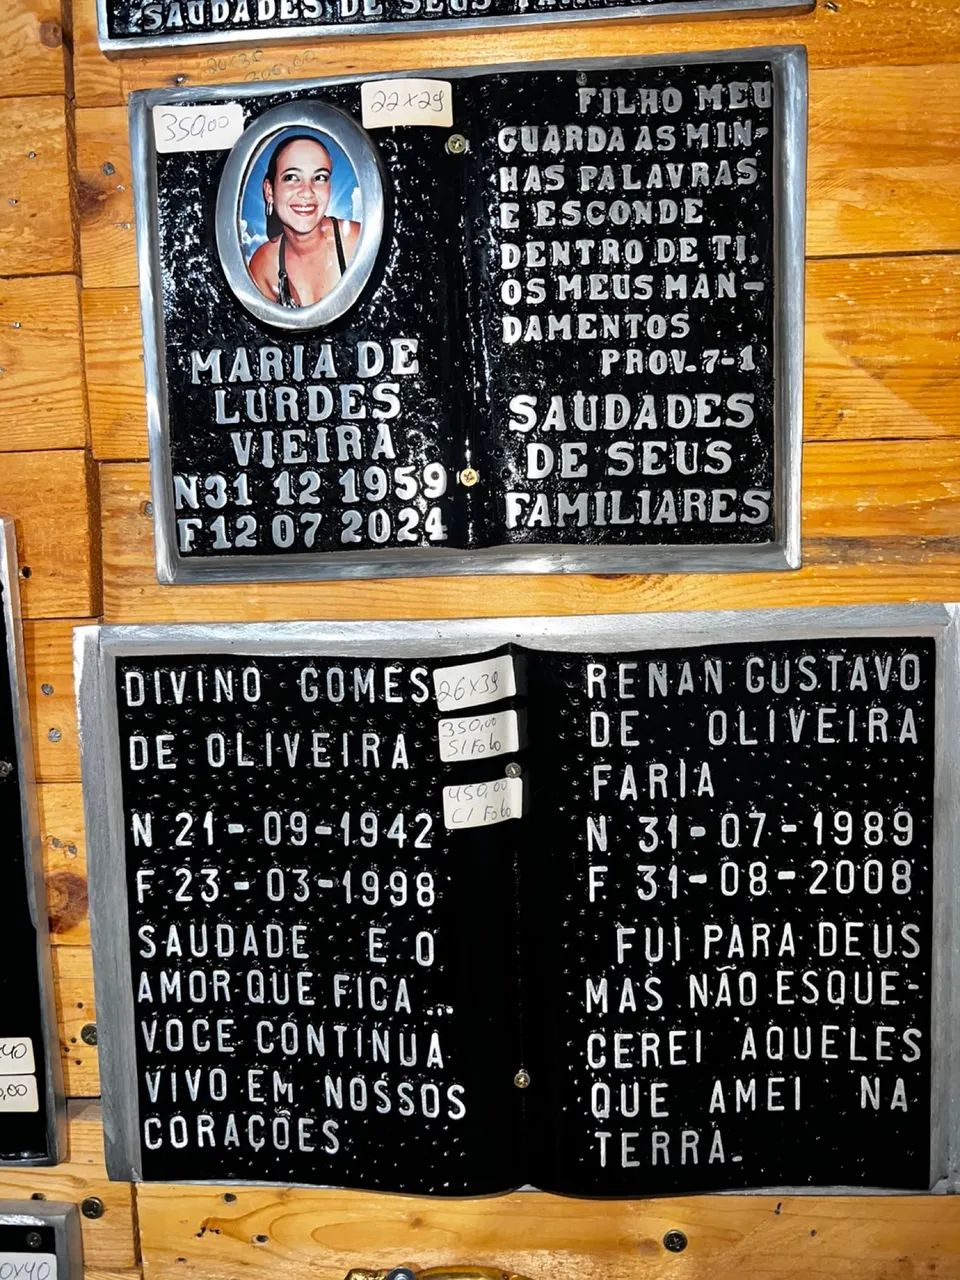 SAUDADES DE SEUS
350,00
22x29
MARIA DE
LURDES
VIEIRA
N31 12 1959
F12 07 2024
FILHO MEU
GUARDA AS MIN-
HAS PALAVRAS
E ESCONDE
DENTRO DE TI,
OS MEUS MAN-
DAMENTOS
PROV. 7-1
SAUDADES
DE SEUS
FAMILIARES
DIVINO GOMES
DE OLIVEIRA
N 21-09-1942
F 23-03-1998
SAUDADE E O
AMOR QUE FICA...
VOCE CONTINUA
VIVO EM NOSSOS
CORAÇÕES
26x39
350,00
S/ Foto
450,00
C/ Foto
RENAN GUSTAVO
DE OLIVEIRA
FARIA
N 31-07-1989
F 31-08-2008
FUI PARA DEUS
MAS NÃO ESQUE-
CEREI AQUELES
QUE AMEI NA
TERRA.